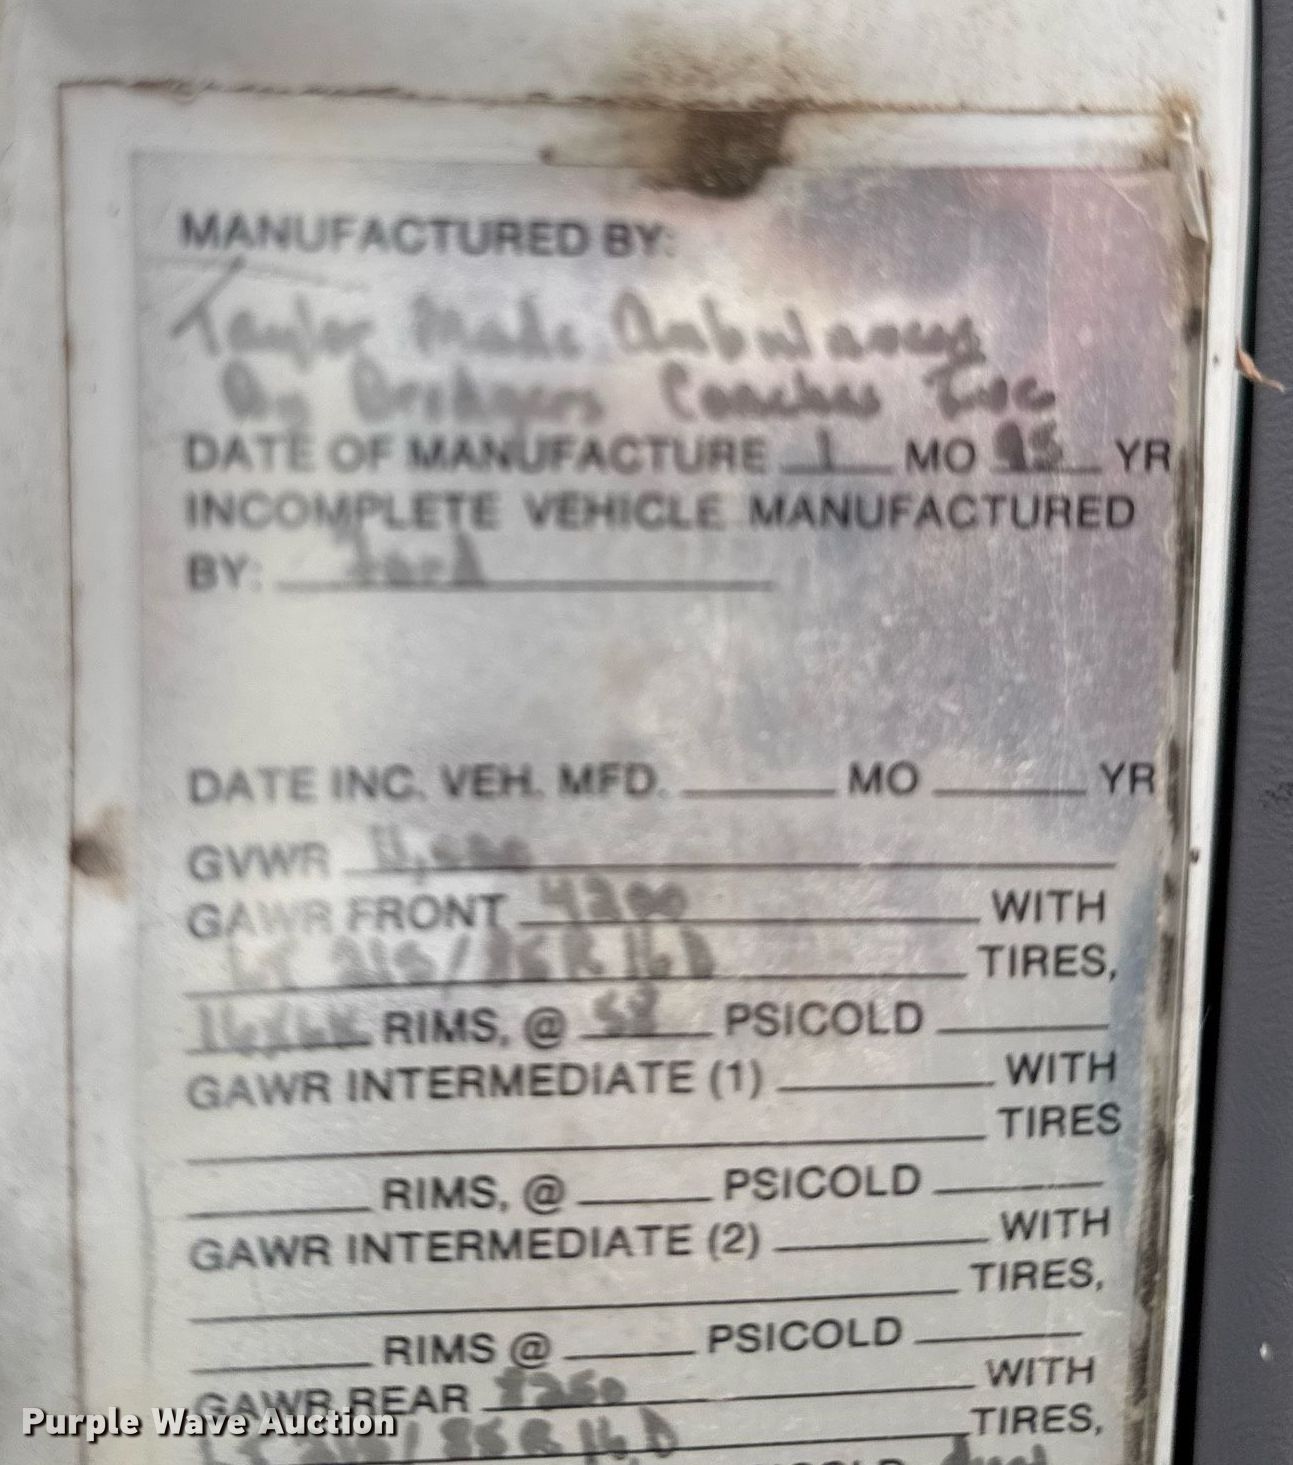 MANUFACTURED BY:
Taylor Made Ambulances
By Coaches Inc
DATE OF MANUFACTURE 1 MO 95 YR
INCOMPLETE VEHICLE MANUFACTURED
BY: Ford
DATE INC. VEH. MFD. ______ MO ______ YR
GVWR 11,000
GAWR FRONT 4200 WITH
LT 215/85R16D TIRES,
16x6K RIMS, @ 58 PSICOLD ______
GAWR INTERMEDIATE (1) ______ WITH
______ TIRES
______ RIMS, @ ______ PSICOLD ______
GAWR INTERMEDIATE (2) ______ WITH
______ TIRES,
______ RIMS @ ______ PSICOLD ______
GAWR REAR WITH
LT 215/85R16D TIRES,
dual
Purple Wave Auction